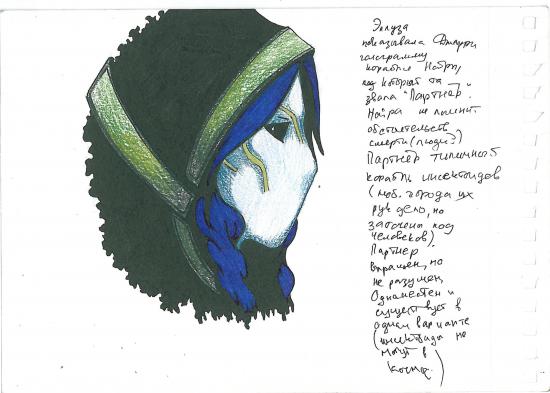 показывала
голограмму
корабля Найры,
который та
звала "Партнер".
Найра не помнит
обстоятельств
смерти (люди?)
Партнер типичный
корабль инсектоидов
(моб. города их
рук дело, но
заточены под
человеков)
Партнер
выращен, но
не разумен,
Одноместен и
существует в
одном варианте
(инсектоиды не
могут в